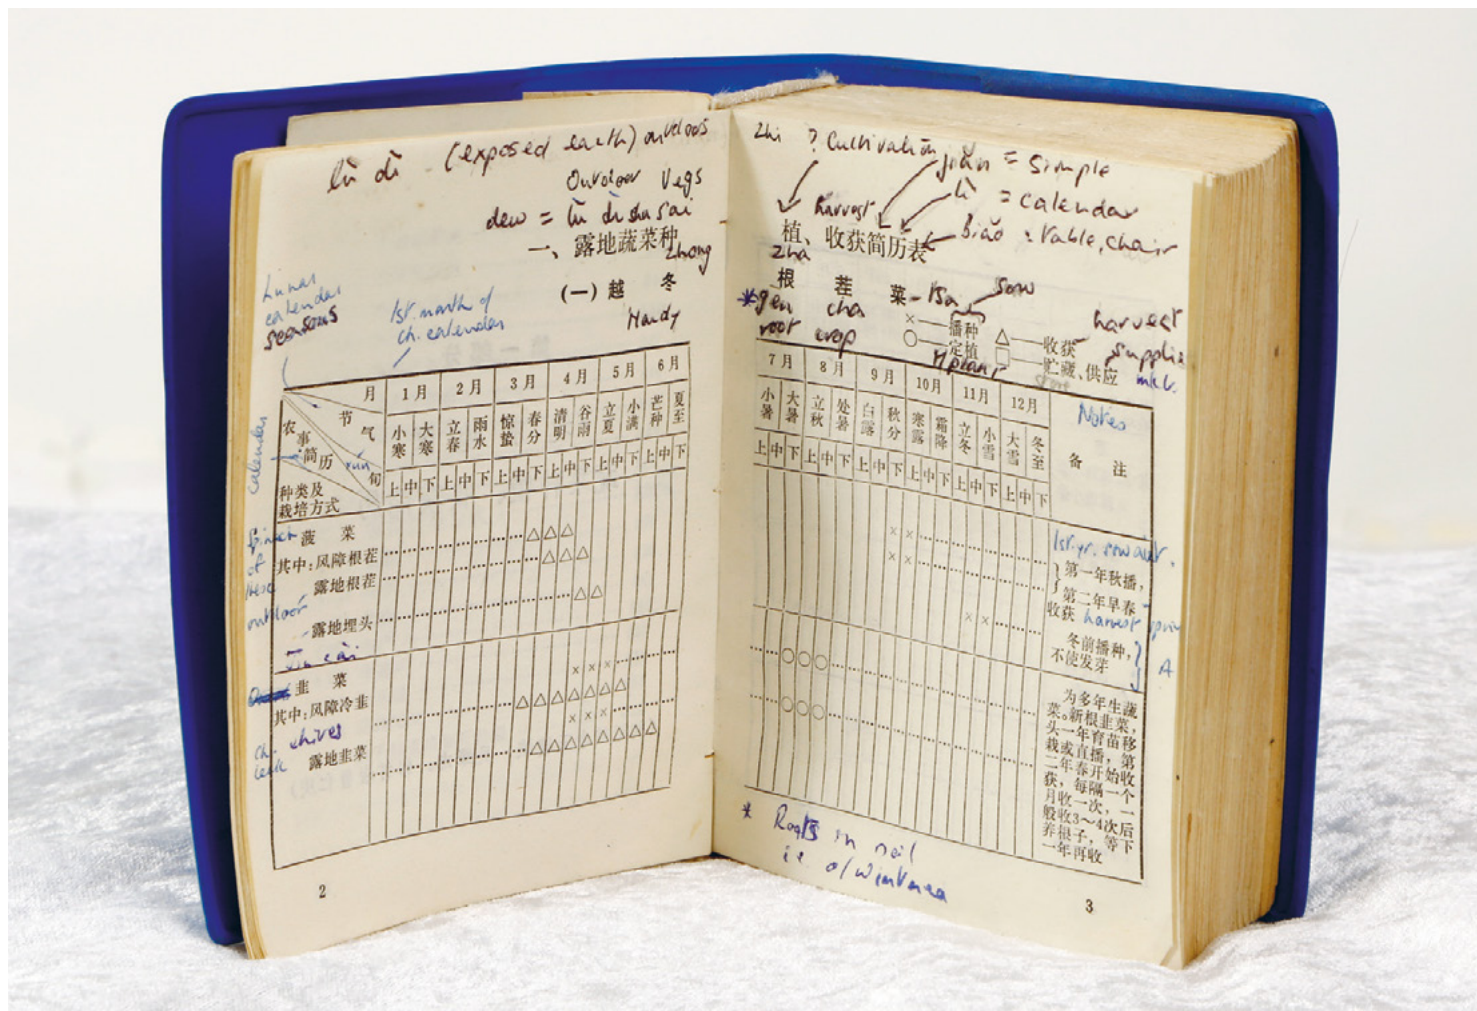 lù dì (exposed earth) outdoors
Outdoor Vegs
dew = lù dì shu sai
一、露地蔬菜种
zhong
(一) 越 冬
Hardy
Lunar
calendar
seasons
1st. month of
ch. calendar
月 1月 2月 3月 4月 5月 6月
节气 小寒 大寒 立春 雨水 惊蛰 春分 清明 谷雨 立夏 小满 芒种 夏至
农事简历
旬 上 中 下 上 中 下 上 中 下 上 中 下 上 中 下 上 中 下
种类及
栽培方式
calendar
xún
Spinach
菠 菜 △△△
of
these
其中:风障根茬 △△△
露地根茬 △△
outdoor
露地埋头
韭 菜 ×××
其中:风障冷韭 △△△△△△△
chives
×××
Ch.
leek
露地韭菜 △△△△△△△△
2
Zhi ? Cultivation
jiǎn = simple
lì = calendar
biǎo = table, chair
harvest
植、收获简历表
zha
根 茬 菜
*gen cha
root crop
sow
×——播种 △——收获
○——定植 □——贮藏、供应
harvest
supplies
mkt.
plant
7月 8月 9月 10月 11月 12月
小暑 大暑 立秋 处暑 白露 秋分 寒露 霜降 立冬 小雪 大雪 冬至
上 中 下 上 中 下 上 中 下 上 中 下 上 中 下 上 中 下
Notes
备 注
××
××
××
1st. yr. sow aut.
第一年秋播,
第二年早春
收获
harvest spring
冬前播种,
不使发芽
A
○○○
○○○
为多年生蔬
菜。新根韭菜,
头一年育苗移
栽或直播,第
二年春开始收
获,每隔一个
月收一次,一
般收3~4次后
养根子,等下
一年再收
* Roots in soil
i.e. o/winter
3